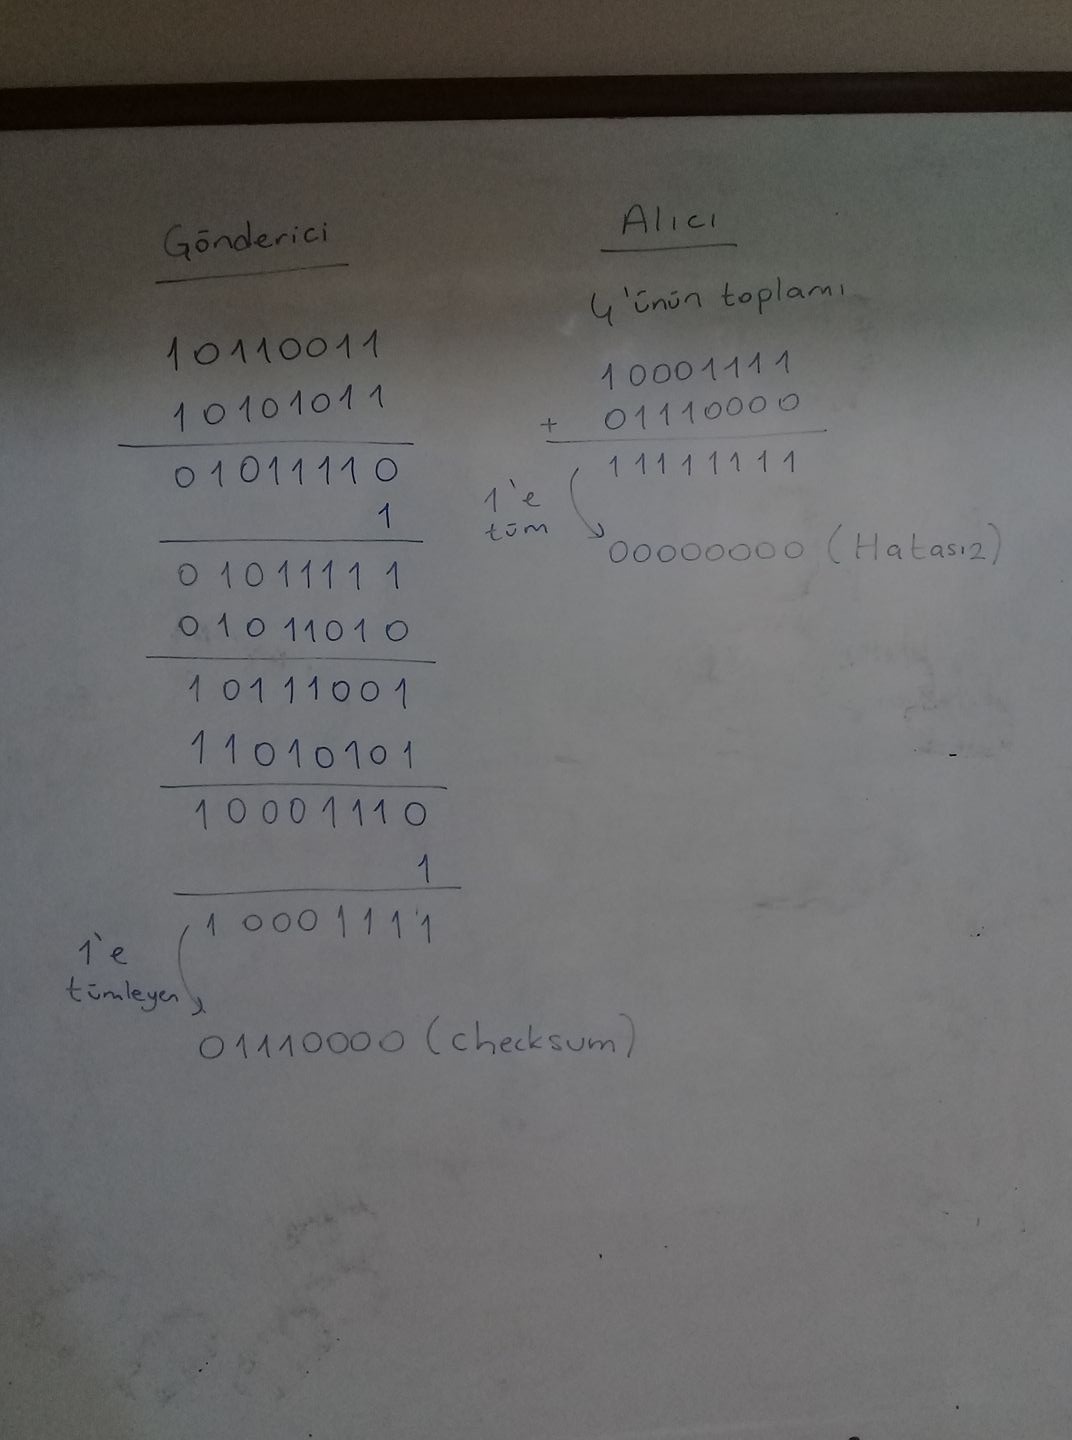 Gönderici
10110011
10101011
01011110
1
01011111
01011010
10111001
11010101
10001110
1
10001111
1'e
tümleyen
01110000 (checksum)
Alıcı
4'ünün toplamı
10001111
+ 01110000
11111111
1'e
tüm
00000000 (Hatasız)